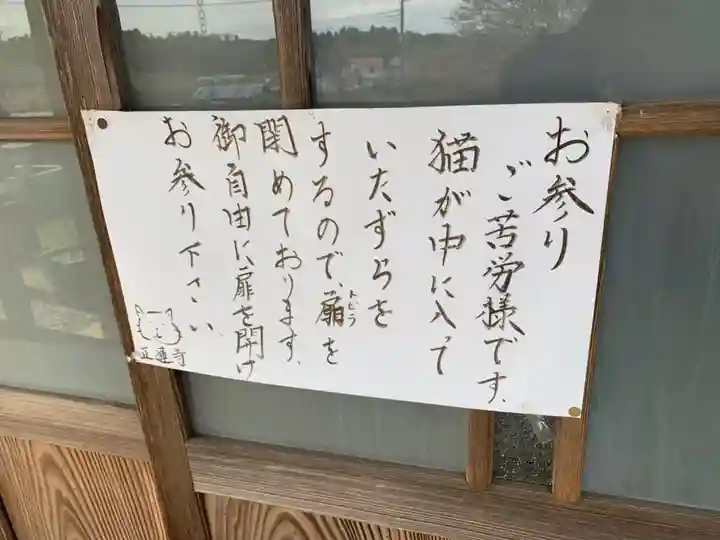 お参り
ご苦労様です.
猫が中に入って
いたずらを
するので、扉を
トビラ
閉めております.
御自由に扉を開け
お参り下さい.
正蓮寺